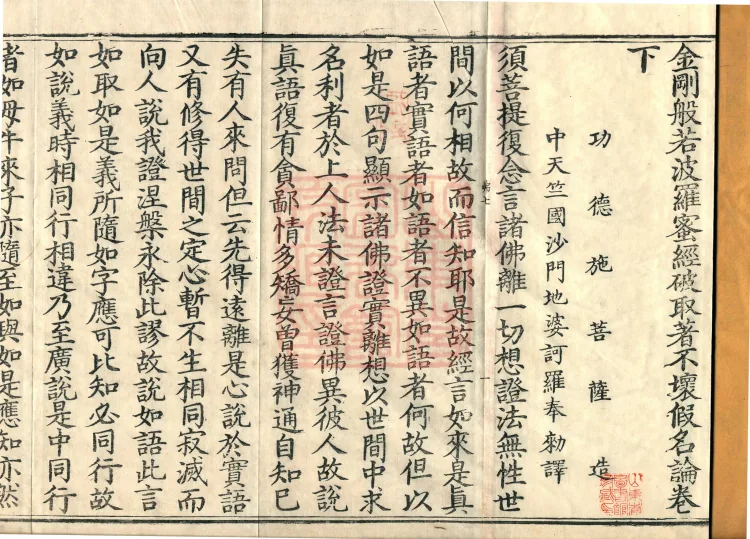 金剛般若波羅蜜經破取著不壞假名論卷
下
功德施菩薩造
中天竺國沙門地婆訶羅奉勑譯
須菩提復念言諸佛離一切想證法無性世
間以何相故而信知耶是故經言如來是眞
語者實語者如語者不異如語者何故但以
如是四句顯示諸佛證實離想以世間中求
名利者於上人法未證言證佛異彼人故說
眞語復有貪鄙情多矯妄曾獲神通自知已
失有人來問但云先得遠離是心說於實語
又有修得世間之定心暫不生相同寂滅而
向人說我證涅槃永除此謬故說如語此言
如取如是義所隨如字應可比知必同行故
如說義時相同行相違乃至廣說是中同行
者如母牛來子亦隨至如與如是應知亦然